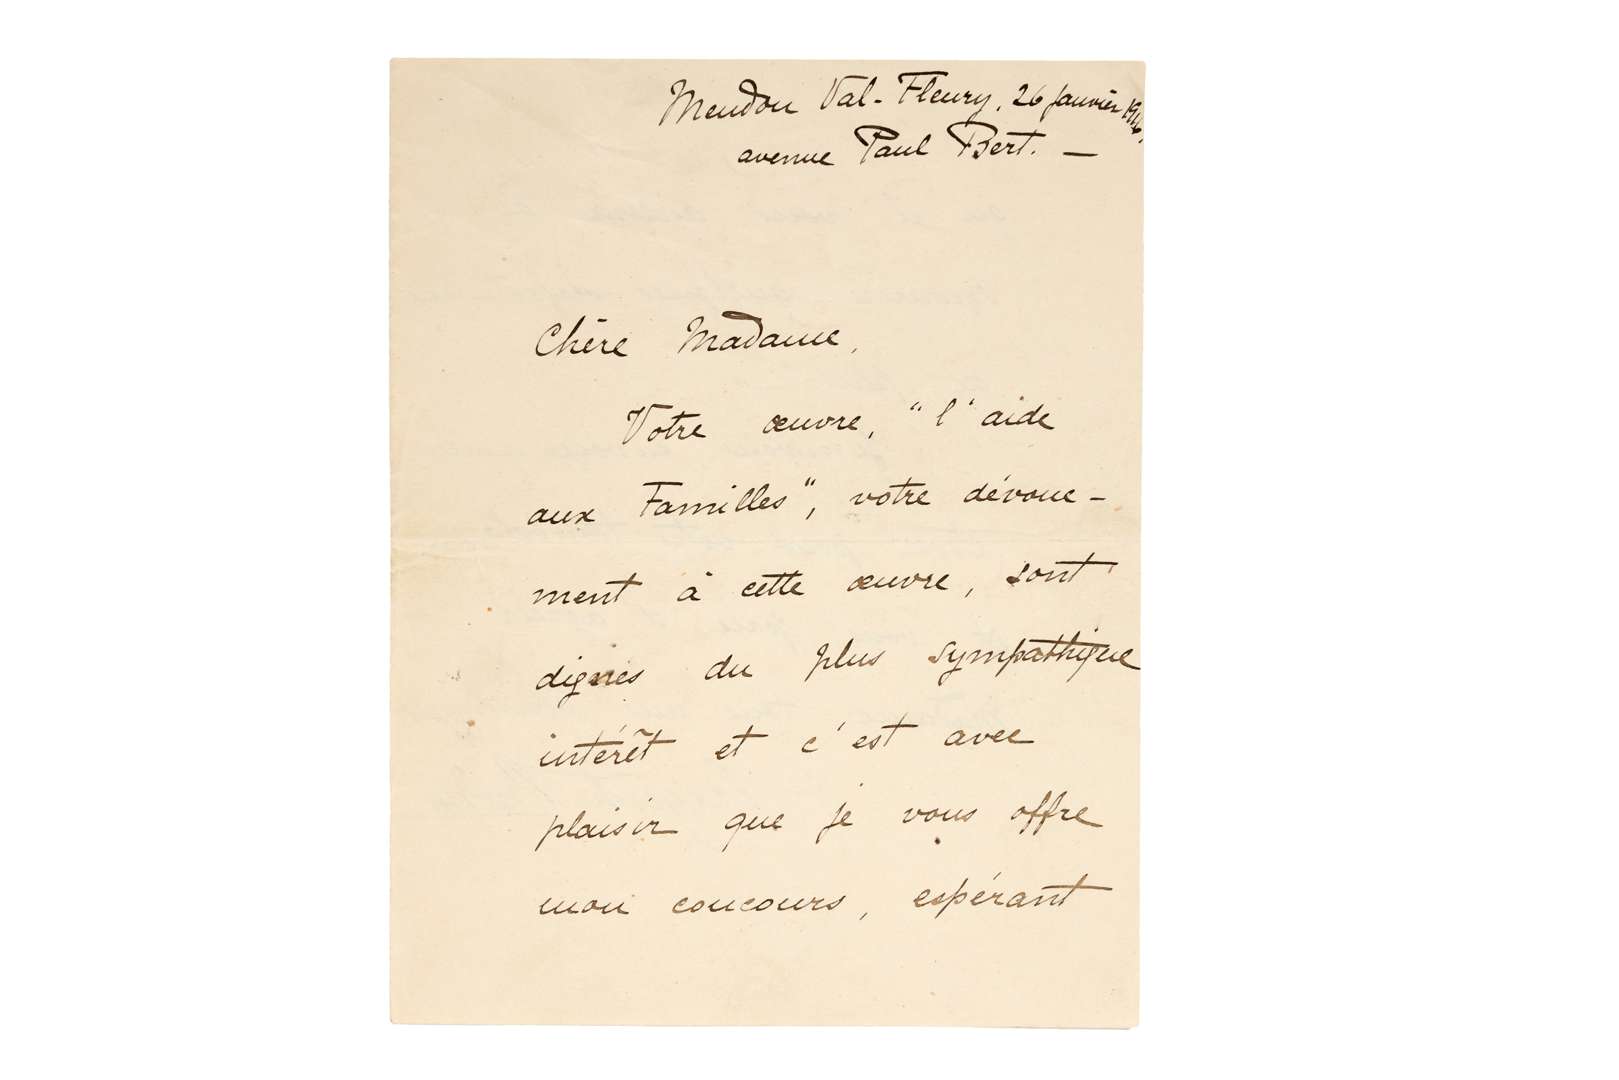 Meudon Val-Fleury, 26 janvier 1916,
avenue Paul Bert. —
Chère Madame,
Votre œuvre, "l'aide
aux Familles", votre dévoue-
ment à cette œuvre, sont
dignes du plus sympathique
intérêt et c'est avec
plaisir que je vous offre
mon concours, espérant